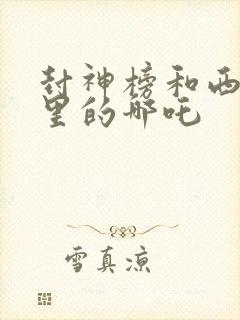 封神榜和西
里的哪吒
雪真凉